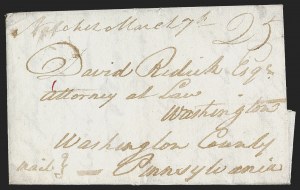 Natchez March 7th 25
David Redick Esqr
Attorney at Law
Washington
Washington County
mail } — Pennsylvania